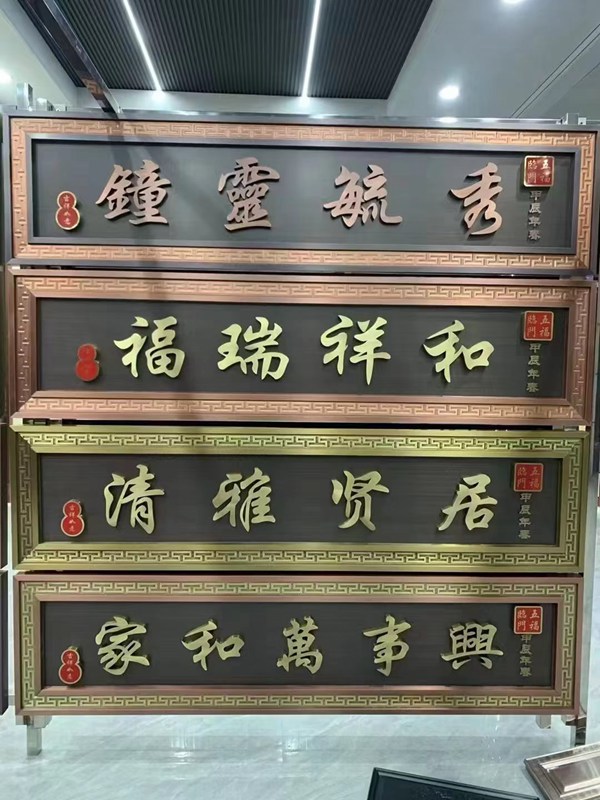 吉祥如意
鐘靈毓秀
五福臨門
甲辰年春
福瑞祥和
五福臨門
甲辰年春
吉祥如意
清雅贤居
五福臨門
甲辰年春
吉祥如意
家和萬事興
五福臨門
甲辰年春